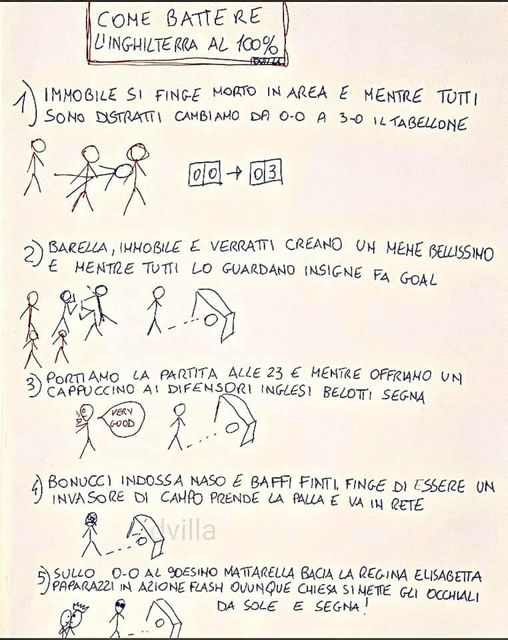 COME BATTERE
L'INGHILTERRA AL 100%
1) IMMOBILE SI FINGE MORTO IN AREA E MENTRE TUTTI
SONO DISTRATTI CAMBIAMO DA 0-0 A 3-0 IL TABELLONE
00 → 03
2) BARELLA, IMMOBILE E VERRATTI CREANO UN MEME BELLISSIMO
E MENTRE TUTTI LO GUARDANO INSIGNE FA GOAL
3) PORTIAMO LA PARTITA ALLE 23 E MENTRE OFFRIAMO UN
CAPPUCCINO AI DIFENSORI INGLESI BELOTTI SEGNA
VERY
GOOD
4) BONUCCI INDOSSA NASO E BAFFI FINTI, FINGE DI ESSERE UN
INVASORE DI CAMPO PRENDE LA PALLA E VA IN RETE
dvilla
5) SULLO 0-0 AL 90ESIMO MATTARELLA BACIA LA REGINA ELISABETTA
PAPARAZZI IN AZIONE FLASH OVUNQUE CHIESA SI METTE GLI OCCHIALI
DA SOLE E SEGNA!